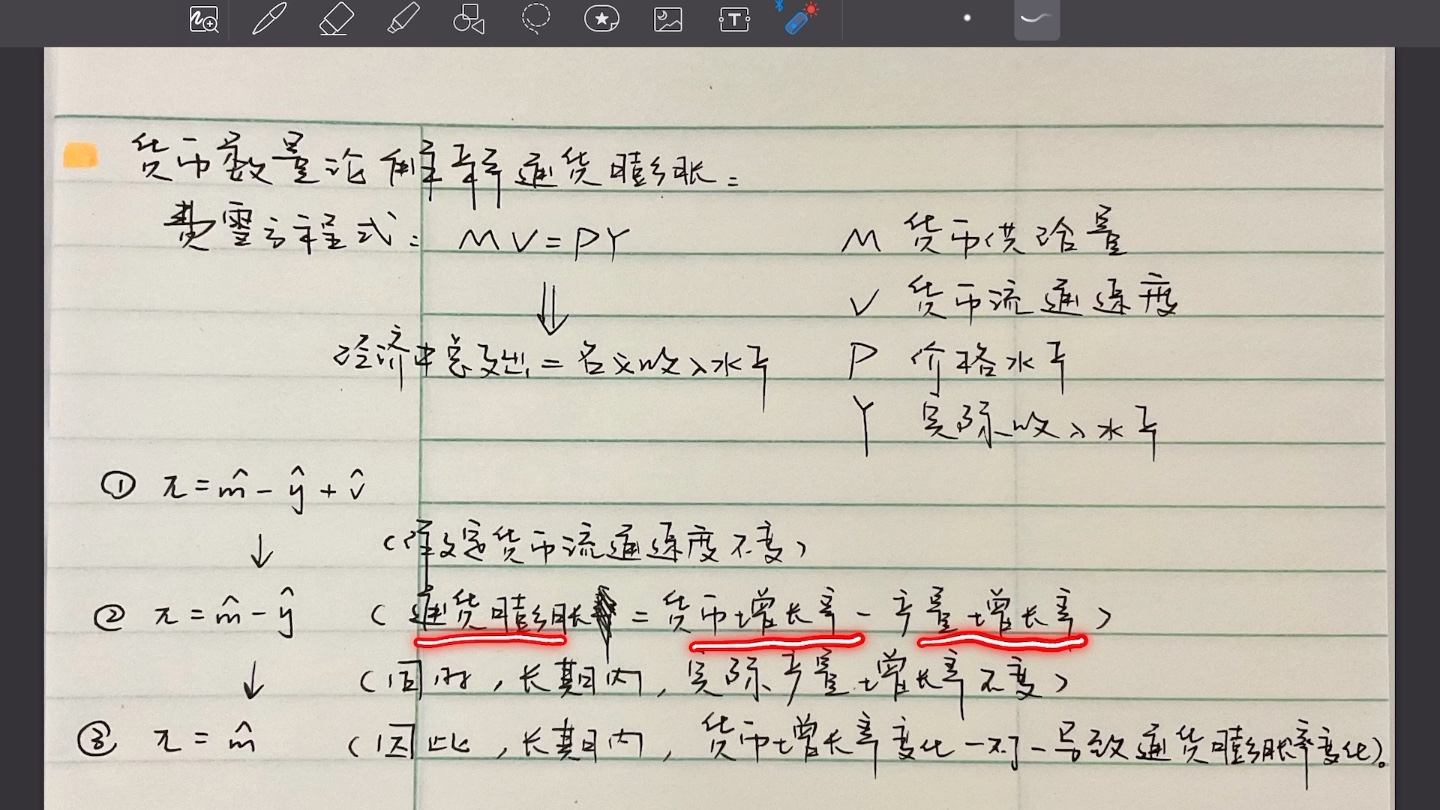 货币数量论解释通货膨胀：
费雪方程式： MV=PY
M 货币供给量
V 货币流通速度
⇓
经济中总支出=名义收入水平
P 价格水平
Y 实际收入水平
① π=m̂-ŷ+v̂
↓ （假设定货币流通速度不变）
② π=m̂-ŷ （通货膨胀 = 货币增长率-产量增长率）
↓ （同时，长期内，实际产量增长率不变）
③ π=m̂ （因此，长期内，货币增长率变化一对一导致通货膨胀率变化）。